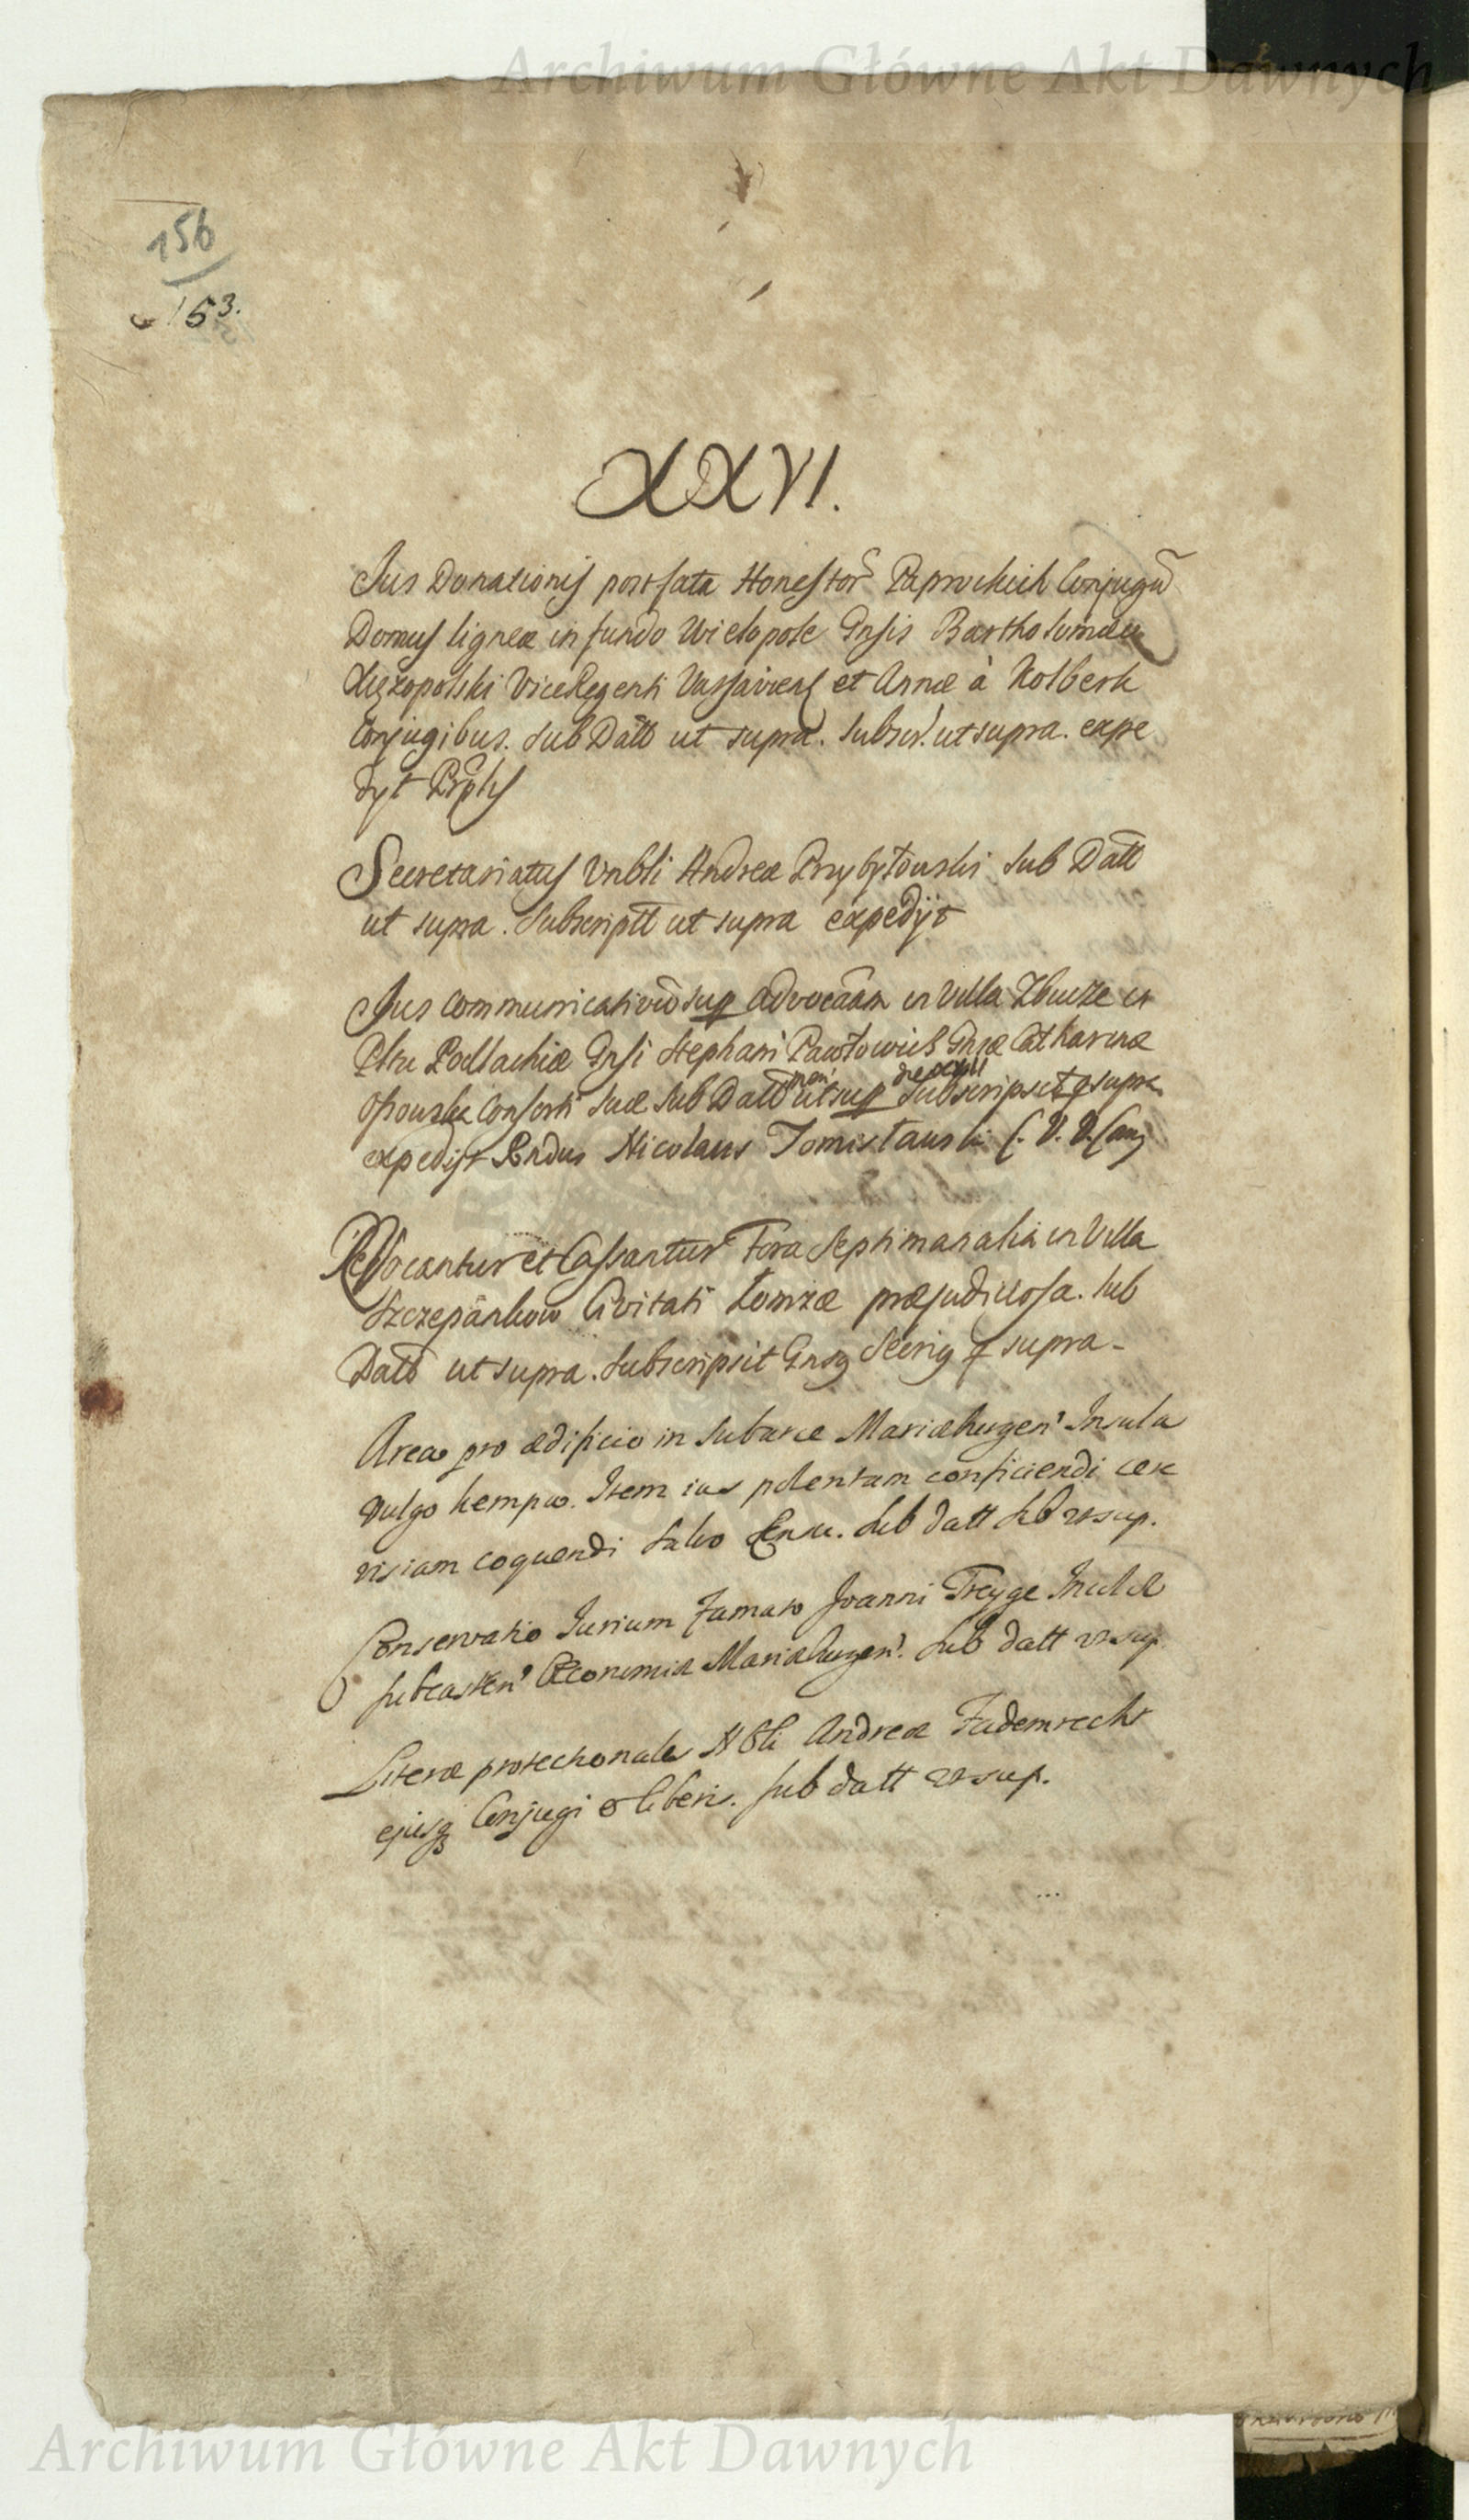 Archiwum Główne Akt Dawnych
156
153.
XXVI.
Jus Donationis post fata Honestor Paprockich Conjugū
Domus ligneæ in fundo Wielopole Gnsis Bartholomæo
Viceregenti Varsaviens et Annæ à Kolberk
Conjugibus. Sub Datt ut supra. Subscr. ut supra. expe
dyt
Secretariatus Vnbli Andreæ Przybyłowski Sub Datt
ut supra. Subscriptt ut supra expedijt
Jus communicativū sup Advocãam in Villa Zbucze in
Podlachiæ Gnsi Stephani Pawłowicz Gnsæ Catharinæ
Consorti suæ Sub Datt ut sup Subscripsit supra
expedijt Rndus Nicolaus Tomisławski
Revocantur et Cassantur Fora Septimanalia in Villa
Szczepãnkow Civitati Łomzæ præjudiciosa. Sub
Datt ut supra. Subscripsit Gnsq supra
Area pro ædificio in Subarce Mariæburgen' Insula
vulgo kempa. Item ius polentam conficiendi cere
visiam coquendi Salvo Censu. Sub datt ut sup.
Conservatio Jurium Famato Joanni Treyge Incolæ
Œconomiæ Mariæburgen'. Sub datt ut sup.
Literæ protectionales Nbli Andreæ Fademrecht
ejusq Conjugi & liberis. Sub datt ut sup.
Archiwum Główne Akt Dawnych